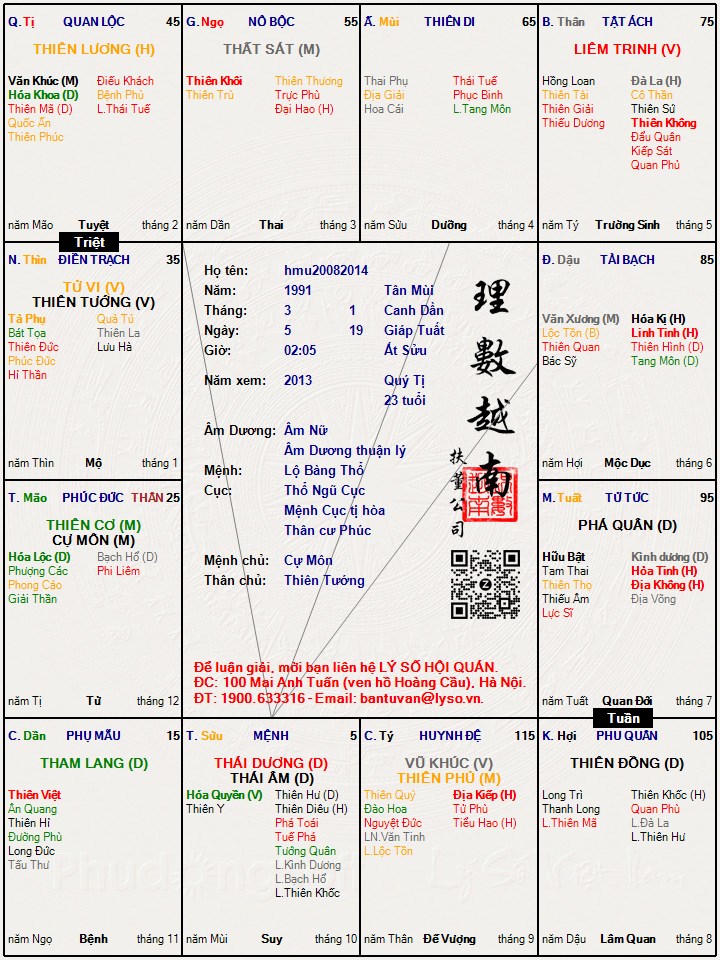 Q. Tị QUAN LỘC 45
THIÊN LƯƠNG (H)
Văn Khúc (M) Điếu Khách
Hóa Khoa (D) Bệnh Phù
Thiên Mã (D) L.Thái Tuế
Quốc Ấn
Thiên Phúc
năm Mão Tuyệt tháng 2
G. Ngọ NÔ BỘC 55
THẤT SÁT (M)
Thiên Khôi Thiên Thương
Thiên Trù Trực Phù
Đại Hao (H)
năm Dần Thai tháng 3
Ấ. Mùi THIÊN DI 65
Thai Phụ Thái Tuế
Địa Giải Phục Binh
Hoa Cái L.Tang Môn
năm Sửu Dưỡng tháng 4
B. Thân TẬT ÁCH 75
LIÊM TRINH (V)
Hồng Loan Đà La (H)
Thiên Tài Cô Thần
Thiên Giải Thiên Sứ
Thiếu Dương Thiên Không
Đẩu Quân
Kiếp Sát
Quan Phủ
năm Tý Trường Sinh tháng 5
Triệt
N. Thìn ĐIỀN TRẠCH 35
TỬ VI (V)
THIÊN TƯỚNG (V)
Tả Phụ Quả Tú
Bát Tọa Thiên La
Thiên Đức Lưu Hà
Phúc Đức
Hỉ Thần
năm Thìn Mộ tháng 1
Họ tên: hmu20082014
Năm: 1991 Tân Mùi
Tháng: 3 1 Canh Dần
Ngày: 5 19 Giáp Tuất
Giờ: 02:05 Ất Sửu
Năm xem: 2013 Quý Tị
23 tuổi
Âm Dương: Âm Nữ
Âm Dương thuận lý
Mệnh: Lộ Bàng Thổ
Cục: Thổ Ngũ Cục
Mệnh Cục tị hòa
Thân cư Phúc
Mệnh chủ: Cự Môn
Thân chủ: Thiên Tướng
理數越南
扶董公司
Để luận giải, mời bạn liên hệ LÝ SỐ HỘI QUÁN.
ĐC: 100 Mai Anh Tuấn (ven hồ Hoàng Cầu), Hà Nội.
ĐT: 1900.633316 - Email: bantuvan@lyso.vn.
Đ. Dậu TÀI BẠCH 85
Văn Xương (M) Hóa Kị (H)
Lộc Tồn (B) Linh Tinh (H)
Thiên Quan Thiên Hình (D)
Bác Sỹ Tang Môn (D)
năm Hợi Mộc Dục tháng 6
T. Mão PHÚC ĐỨC THÂN 25
THIÊN CƠ (M)
CỰ MÔN (M)
Hóa Lộc (D) Bạch Hổ (D)
Phượng Các Phi Liêm
Phong Cáo
Giải Thần
năm Tị Tử tháng 12
M. Tuất TỬ TỨC 95
PHÁ QUÂN (D)
Hữu Bật Kình dương (D)
Tam Thai Hỏa Tinh (H)
Thiên Thọ Địa Không (H)
Thiếu Âm Địa Võng
Lực Sĩ
năm Tuất Quan Đới tháng 7
Tuần
C. Dần PHỤ MẪU 15
THAM LANG (D)
Thiên Việt
Ân Quang
Thiên Hỉ
Đường Phù
Long Đức
Tấu Thư
năm Ngọ Bệnh tháng 11
T. Sửu MỆNH 5
THÁI DƯƠNG (D)
THÁI ÂM (D)
Hóa Quyền (V) Thiên Hư (D)
Thiên Y Thiên Diêu (H)
Phá Toái
Tuế Phá
Tướng Quân
L.Kình Dương
L.Bạch Hổ
L.Thiên Khốc
năm Mùi Suy tháng 10
C. Tý HUYNH ĐỆ 115
VŨ KHÚC (V)
THIÊN PHỦ (M)
Thiên Quý Địa Kiếp (H)
Đào Hoa Tử Phù
Nguyệt Đức Tiểu Hao (H)
LN.Văn Tinh
L.Lộc Tồn
năm Thân Đế Vượng tháng 9
K. Hợi PHU QUÂN 105
THIÊN ĐỒNG (D)
Long Trì Thiên Khốc (H)
Thanh Long Quan Phù
L.Thiên Mã L.Đà La
L.Thiên Hư
năm Dậu Lâm Quan tháng 8